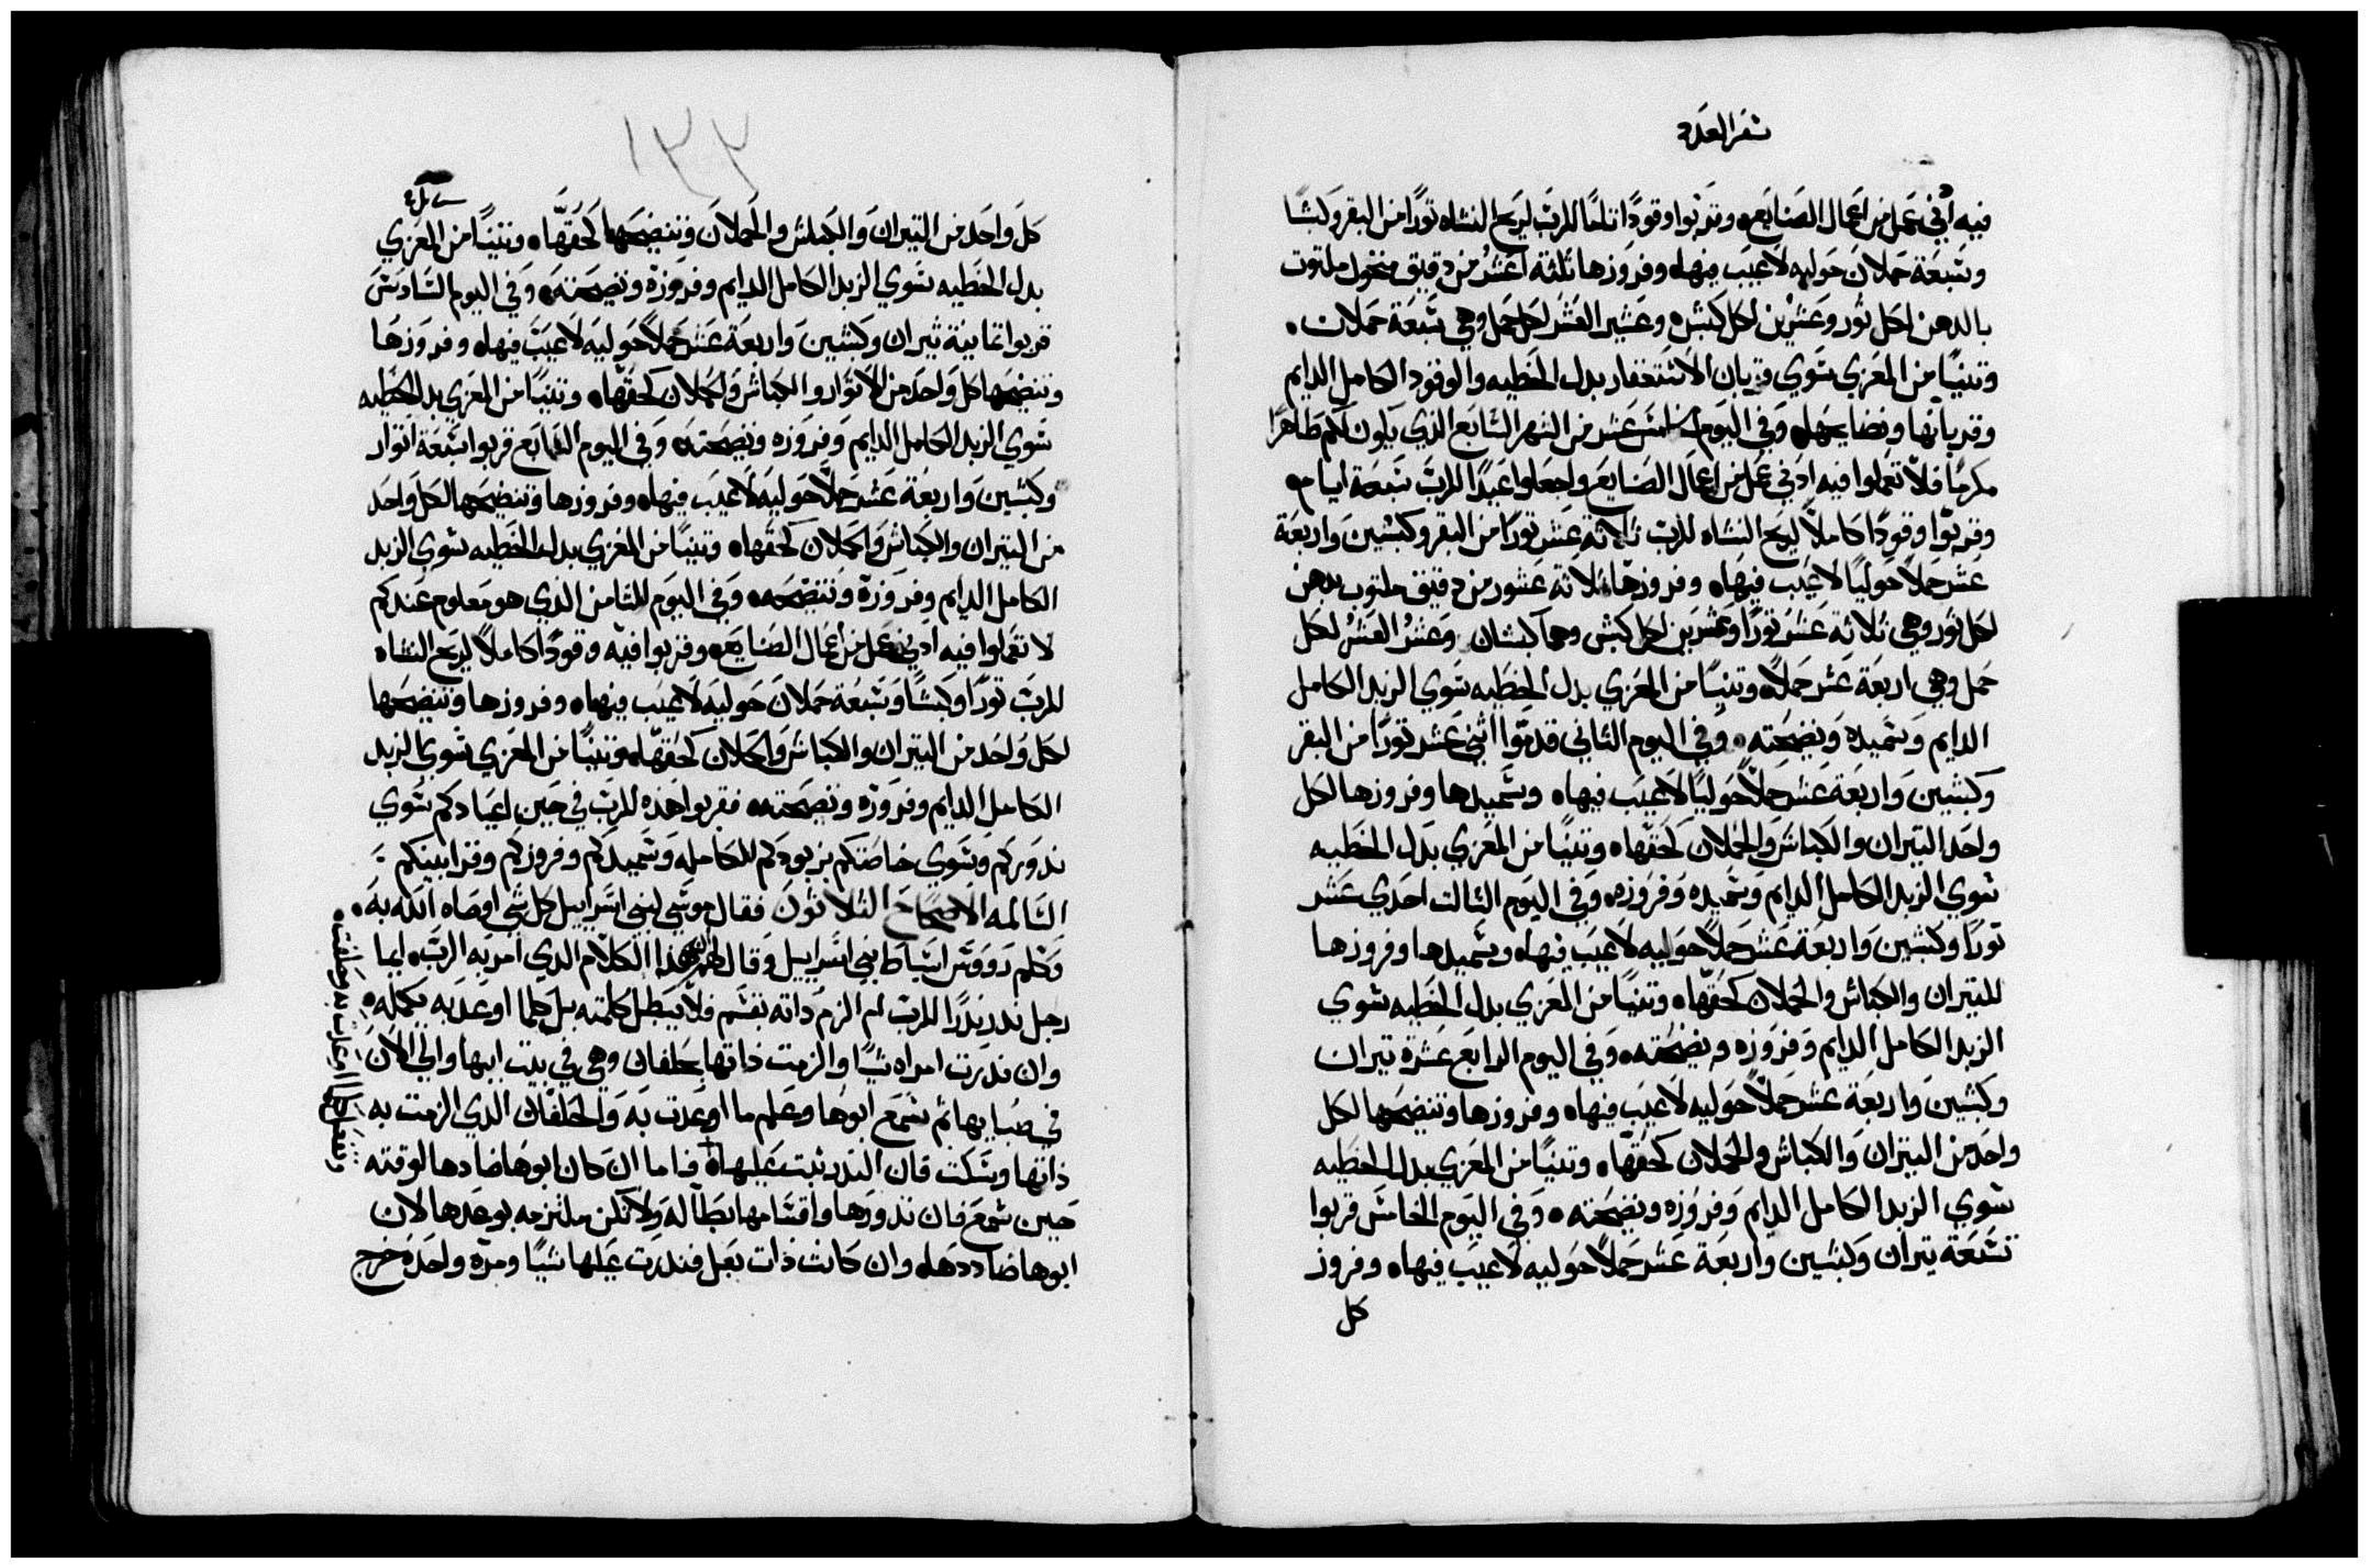 سفر العدد
فيه أدني عمل من اعمال الصنايع وقربوا وقودًا تامًا للرب لريح النشاه ثورًا من البقر وكبشًا
وسبعة حملان حوليه لا عيب فيها وفروزها ثلثة اعشُر من دقيق منخول ملتوت
بالدهن لكل ثور وعشرين لكل كبش وعشير العشر لكل حمل وهي سبعة حملان
وتنيًا من المعزي سوي قربان الاستغفار بدل الخطيه والوقود الكامل الدايم
وقربانها ونضايحها وفي اليوم الخامس عشر من الشهر السابع الذي يكون لكم طاهرًا
مكرمًا فلا تعملوا فيه ادني عمل من اعمال الصنايع واجعلوا عيدًا للرب سبعة ايام
وقربوا وقودًا كاملاً لريح النشاه للرب ثلاثة عشر ثورًا من البقر وكبشين واربعة
عشر حملاً حوليًا لا عيب فيها وفروزها ثلاثة عشور من دقيق ملتوت بدهن
لكل ثور وهي ثلاثه عشر ثورًا وعشرين لكل كبش وهما كبشان وعشرُ العشرُ لكل
حمل وهي اربعة عشر حملاً وتنيًا من المعزي بدل الخطيه سوي الزبد الكامل
الدايم وسميده ونضحته وفي اليوم الثاني قدموا اثني عشر ثورًا من البقر
وكبشين واربعة عشر حملاً حوليًا لا عيب فيها وسميدها وفروزها لكل
واحد الثيران والكباش والحملان كحقها وتنيًا من المعزي بدل الخطيه
سوي الزبد الكامل الدايم وسميده وفروزه وفي اليوم الثالث احدي عشر
ثورًا وكبشين واربعة عشر حملاً حوليه لا عيب فيها وسميدها وفروزها
للثيران والكباش والحملان كحقها وتنيًا من المعزي بدل الخطيه سوي
الزبد الكامل الدايم وفروزه ونضحته وفي اليوم الرابع عشرة ثيران
وكبشين واربعة عشر حملاً حوليه لا عيب فيها وفروزها وتنضحها لكل
واحد من الثيران والكباش والحملان كحقها وتنيًا من المعزي بدل الخطيه
سوي الزبد الكامل الدايم وفروزه ونضحته وفي اليوم الخامس قربوا
تسعة ثيران وكبشين واربعة عشر حملاً حوليه لا عيب فيها وفروز
كل
١٣٣
كل واحد من الثيران والكباش والحملان وتنضحها كحقها وتنيًا من المعزي
بدل الخطيه سوي الزبد الكامل الدايم وفروزة ونضحته وفي اليوم السادس
قربوا ثمانية ثيران وكبشين واربعة عشر حملاً حوليه لا عيب فيها وفروزها
وتنضحها كل واحد من الاثوار والكباش والحملان كحقها وتنيًا من المعزي بدل الخطيه
سوي الزبد الكامل الدايم وفروزه ونضحته وفي اليوم السابع قربوا سبعة اثوار
وكبشين واربعة عشر حملاً حوليه لا عيب فيها وفروزها وتنضحها لكل واحد
من الثيران والكباش والحملان كحقها وتنيًا من المعزي بدل الخطيه سوي الزبد
الكامل الدايم وفروزة وتنضحه وفي اليوم الثامن الذي هو معلوم عندكم
لا تعملوا فيه ادني عمل من اعمال الصنايع وقربوا فيه وقودًا كاملاً لريح النشاه
للرب ثورًا وكبشًا وسبعة حملان حوليه لا عيب فيها وفروزها وتنضحها
لكل واحد من الثيران والكباش والحملان كحقها وتنيًا من المعزي سوي الزبد
الكامل الدايم وفروزه ونضحته فقربوا هذه للرب في حين اعيادكم سوي
ندوركم وسوي خاصتكم بزبودكم الكامله وسميدكم وفروزكم وقرابينكم
السالمه الاصحاح الثلاثون فقال موسي لبني اسراييل كل شي اوصاه الله به
وكلم رووس اسباط بني اسراييل وقال لهم هذا الكلام الذي امر به الرب ايما
رجل ندر ندرًا للرب ام الزم داته بقسم فلا يبطل كلمته بل كلما اوعد به يكمله
وان ندرت امراه شيًا والزمت ذاتها بحلفان وهي في بيت ابيها والي الان
في صبايها ثم سمع ابوها وعلم ما اوعدت به والحلفان الدي الزمت به
ذاتها وسكت فان الندر ثبت عليها فاما ان كان ابوها ضادها لوقته
حين سمع فان ندورها واقسامها بطاله ولا تكن ملتزمه بوعدها لان
ابوها ضاددها وان كانت ذات بعل فندرت عليها شيًا ومرة واحدة خرج